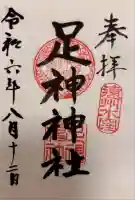 奉拝
足神神社
令和六年八月十二日